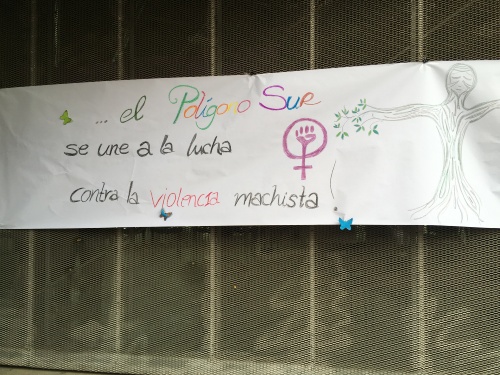 ... el Polígono Sur
se une a la lucha
contra la violencia machista!